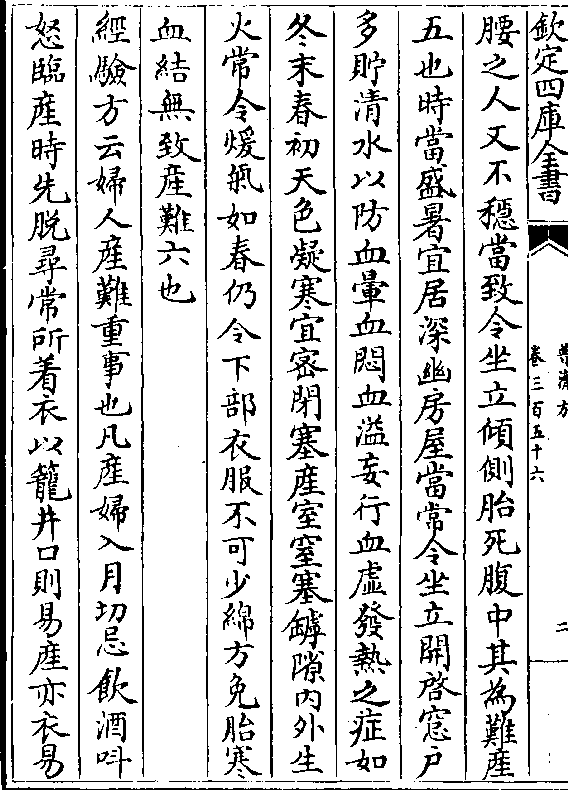 欽定四庫全書
普濟方
卷三百五十六
二
腰之人又不穩當致令坐立傾側胎死腹中其為難產
五也時當盛暑宜居深幽房屋當常令坐立開啓窓戶
多貯清水以防血暈血悶血溢妄行血虛發熱之症如
冬末春初天色凝寒宜密閉塞產室窒塞罅隙內外生
火常令煖氣如春仍令下部衣服不可少綿方免胎寒
血結無致產難六也
經驗方云婦人產難重事也凡產婦入月切忌飲酒叫
怒臨産時先脫尋常所着衣以籠井口則易產亦衣易